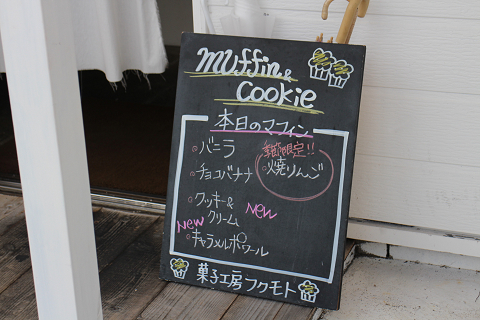 Muffin &
Cookie
本日のマフィン
◦バニラ
◦チョコバナナ
◦クッキー&
クリーム New
New
◦キャラメルポワール
季節限定!!
◦焼りんご
菓子工房フクモト